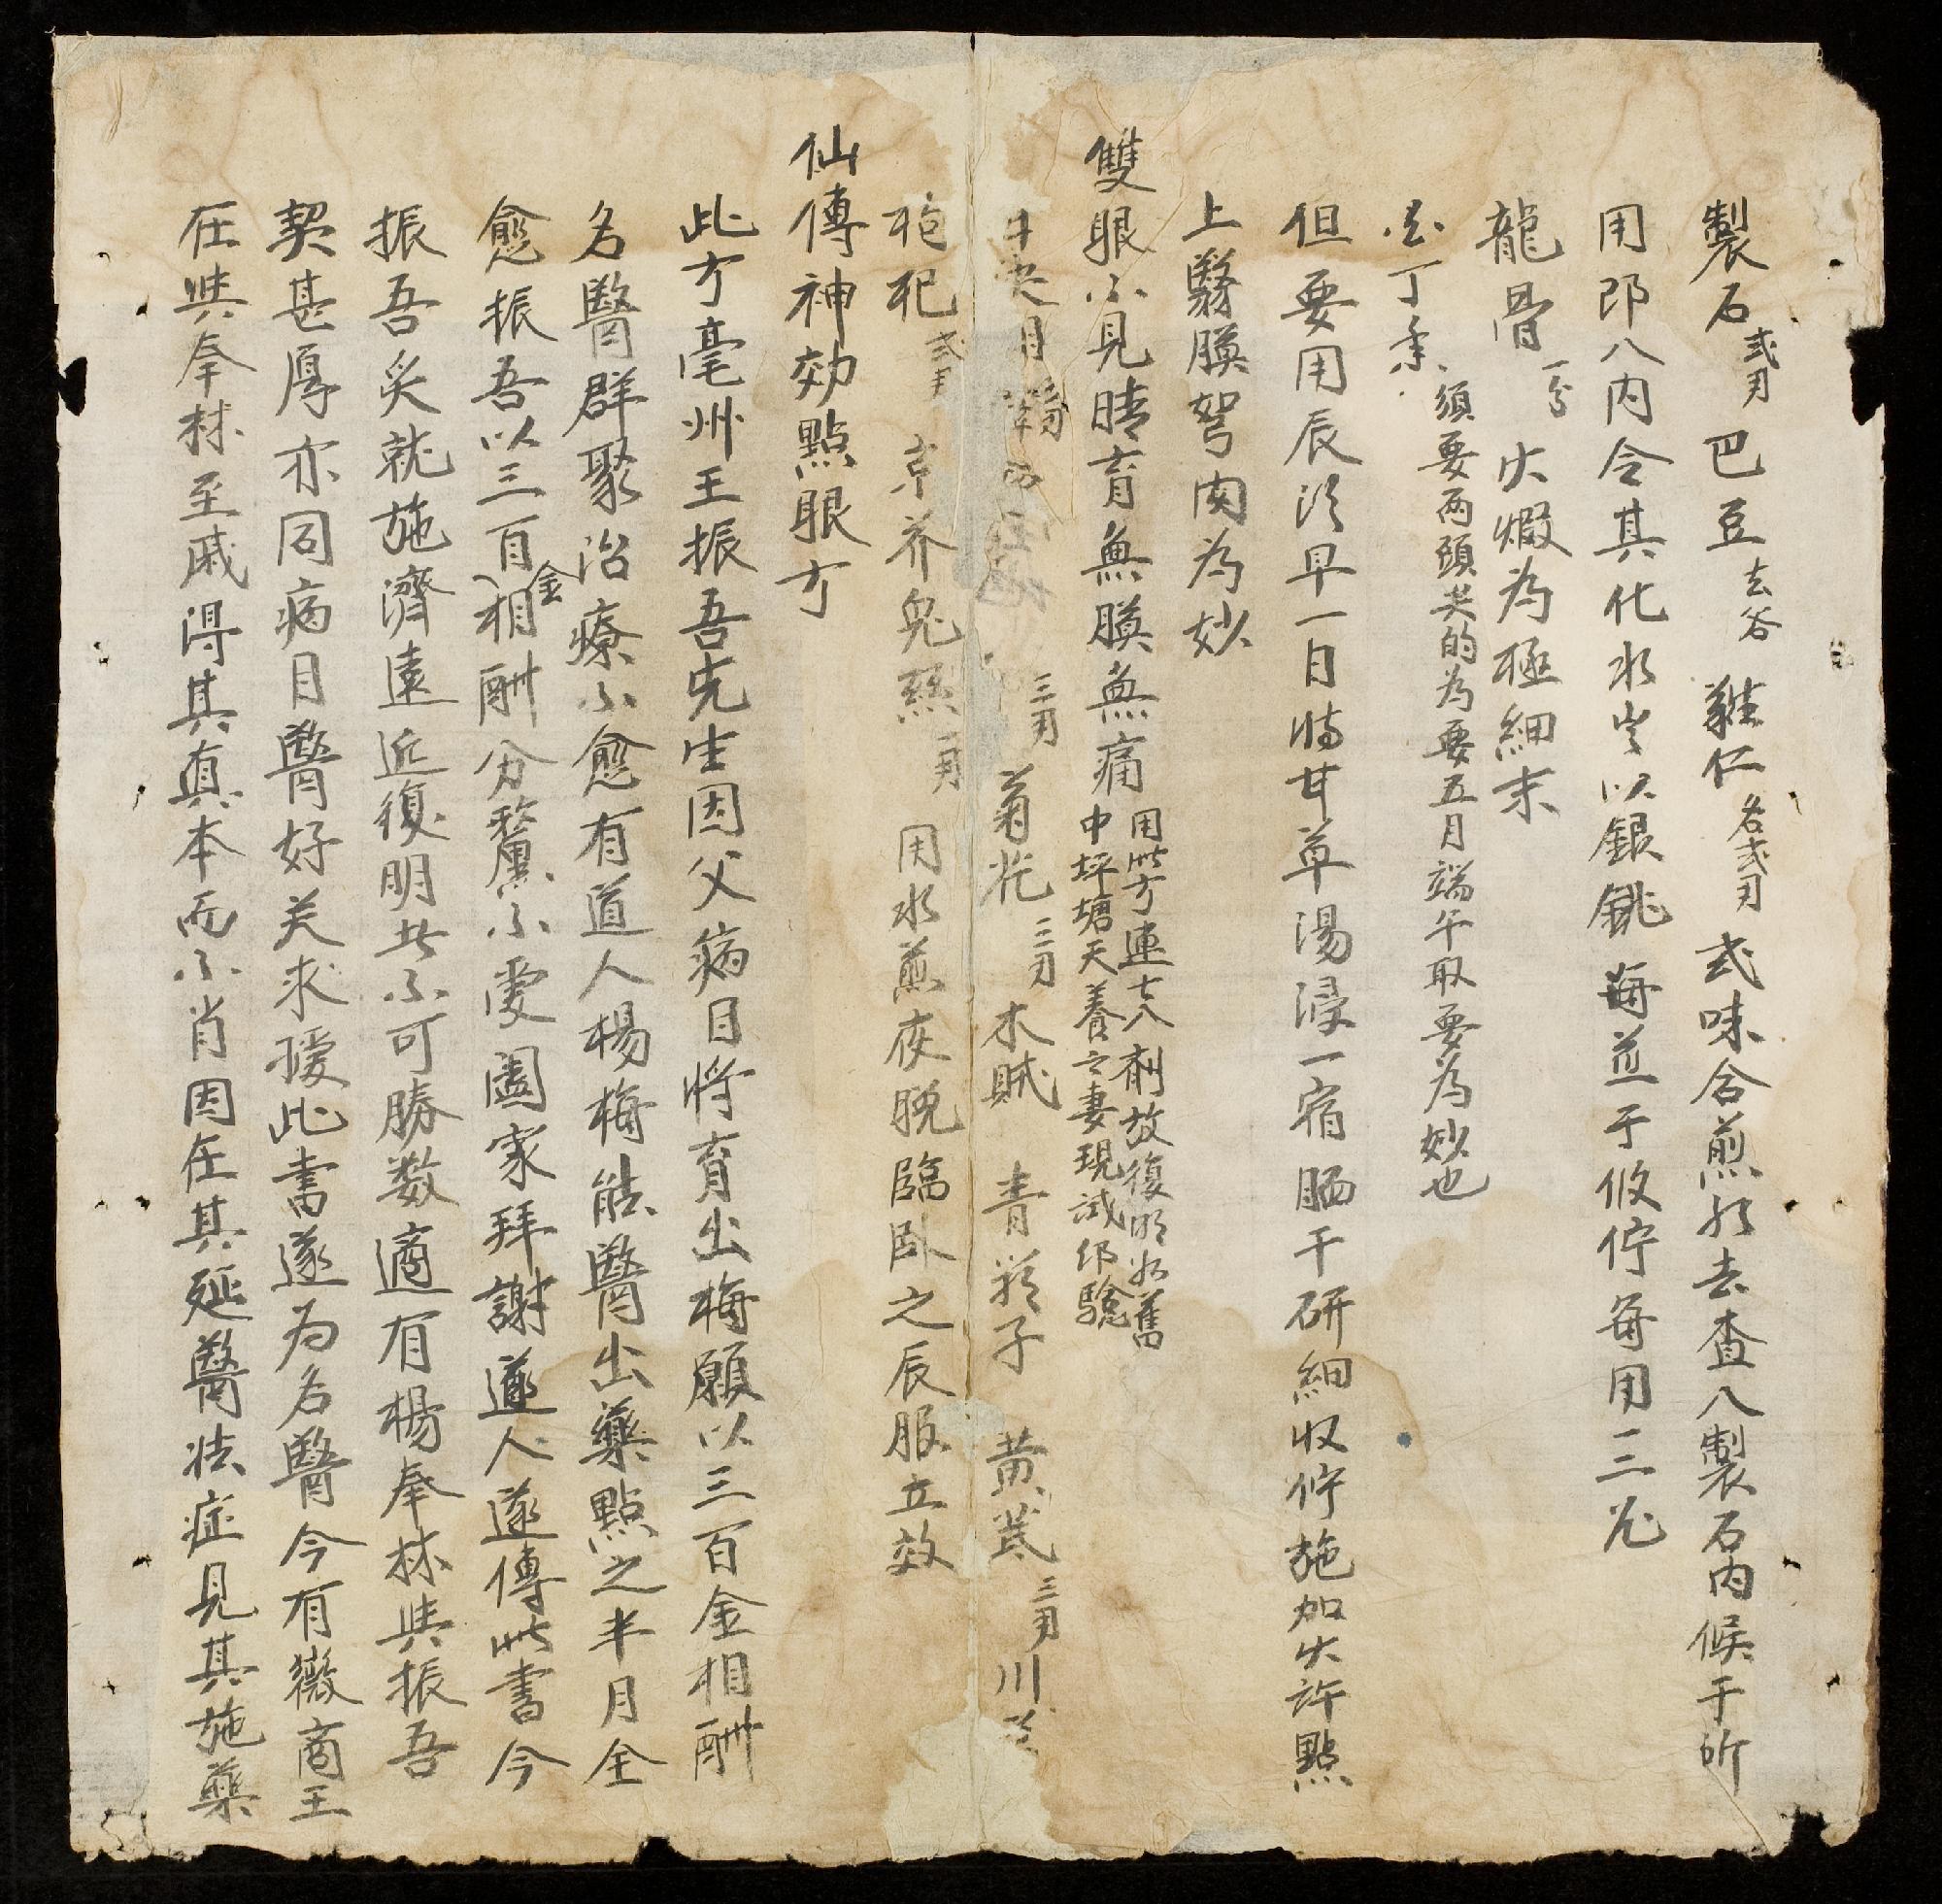 製石弍刄 巴豆去谷 雞仁各弍刄 弍味合煎水去査八製石内候干听
用郎八内令其化水𫝑以銀銚海並于收佇每用三兄
龍骨一分 火煆為極細末
公丁香 須要两頭尖的為要五月端午取要為妙也
但要用辰深早一日時甘草湯浸一宿晒干研細收佇施加火許點
上翳膜努肉為妙
雙眼不見睛育無膜無痛 用此方連七八剤故復明如舊
中坪塘天養之妻現試卽驗
三刄 菊花三刄 木賊 青葙子 黄芪三刄 川芎
枸杞弍刄 京芥 兔絲一刄 用水煎夜晚臨卧之辰服立效
仙傳神効點眼方
此方毫州王振吾先生因父病目將育出梅願以三百金相酬
名醫群聚治療不愈有道人楊梅能醫出藥點之半月全
愈振吾以三百金相酬分釐不受闔家拜謝道人遂傳此書今
振吾炙就施濟遠近復明者不可勝数適有楊奉林與振吾
契甚厚亦同病目醫好关求援此書遂為名醫今有徽商王
在與奉林至戚得其真本而不肖因在其延醫法症見其施藥